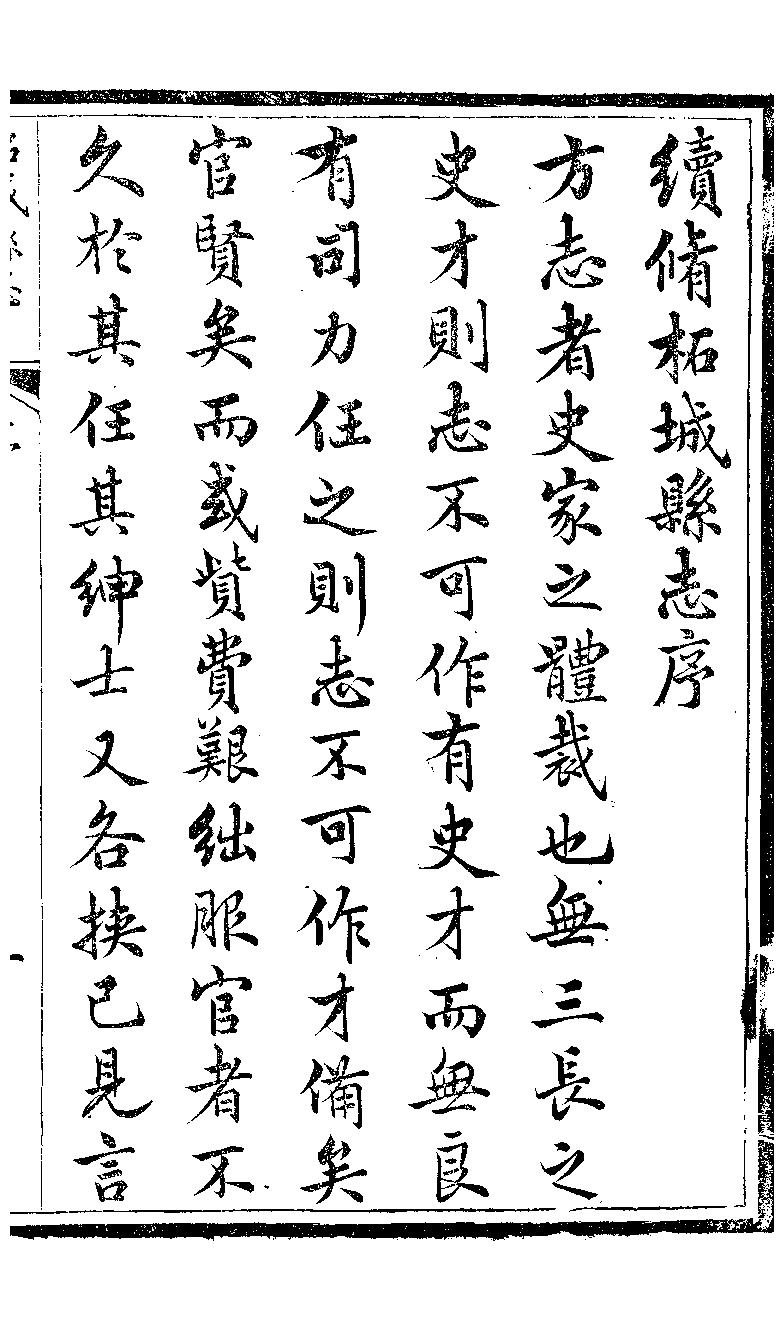 續脩柘城縣志序
方志者史家之體裁也無三長之
史才則志不可作有史才而無良
有司力任之則志不可作才備矣
官賢矣而或貲費艱絀服官者不
久於其任其紳士又各挾己見言